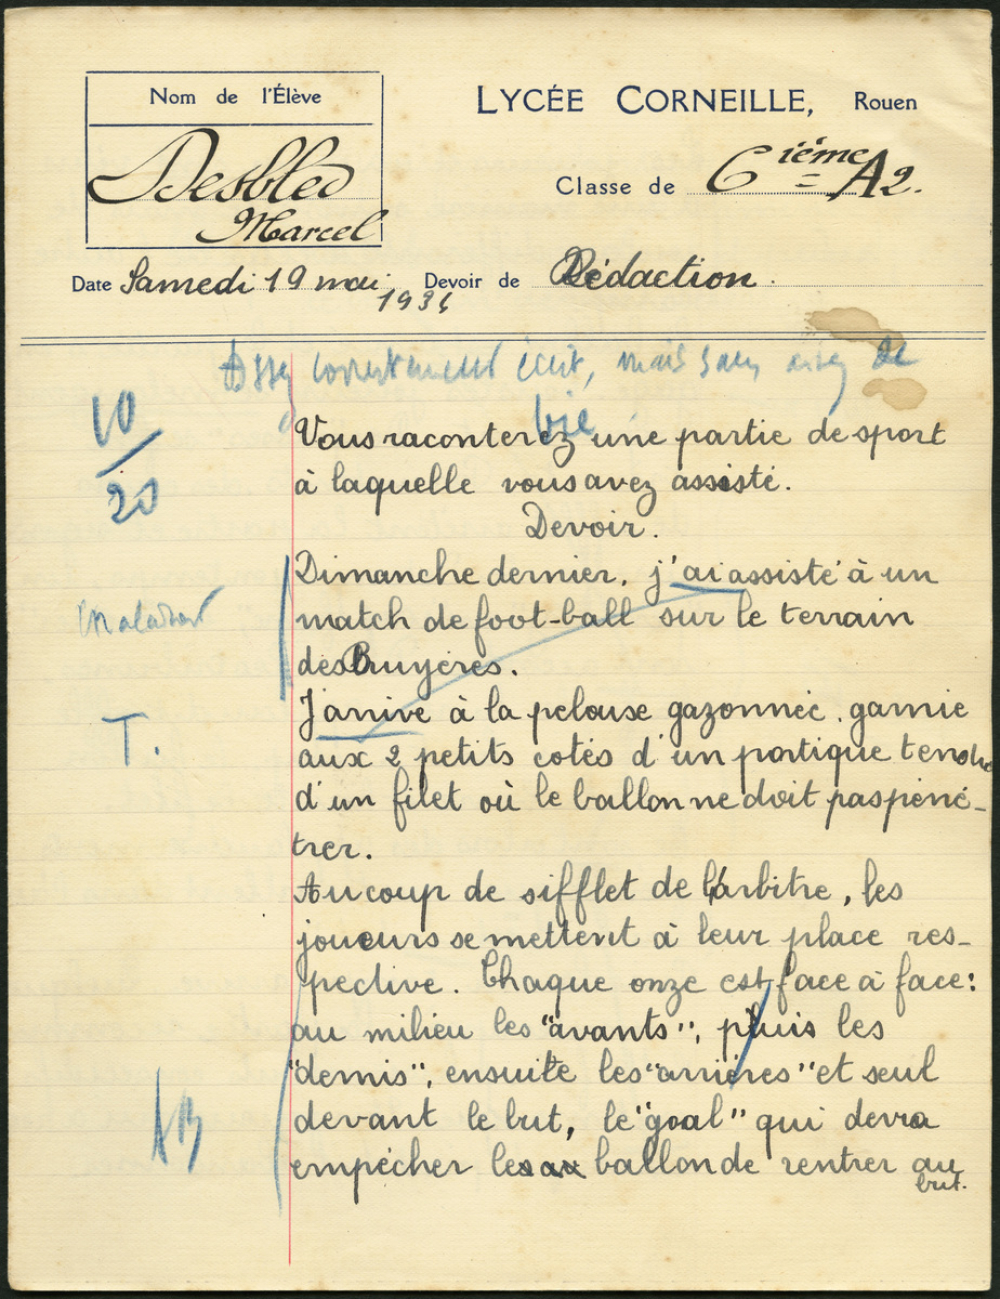 Nom de l'Élève
LYCÉE CORNEILLE, Rouen
Desbled
Marcel
Classe de 6ième A2.
Date Samedi 19 mai 1934
Devoir de Rédaction.
Assez correctement écrit, mais sans assez de
vie
10/20
Vous raconterez une partie de sport
à laquelle vous avez assisté.
Devoir.
Dimanche dernier, j'ai assisté à un
Maladroit
match de foot-ball sur le terrain
des Bruyères.
J'arrive à la pelouse gazonnée, garnie
T.
aux 2 petits cotés d'un portique tendu
d'un filet où le ballon ne doit pas péné-
trer.
Au coup de sifflet de l'arbitre, les
joueurs se mettent à leur place res-
pective. Chaque onze est face à face:
au milieu les "avants", puis les
"demis", ensuite les "arrières" et seul
devant le but, le "goal" qui devra
AB
empêcher le ballon de rentrer au
but.